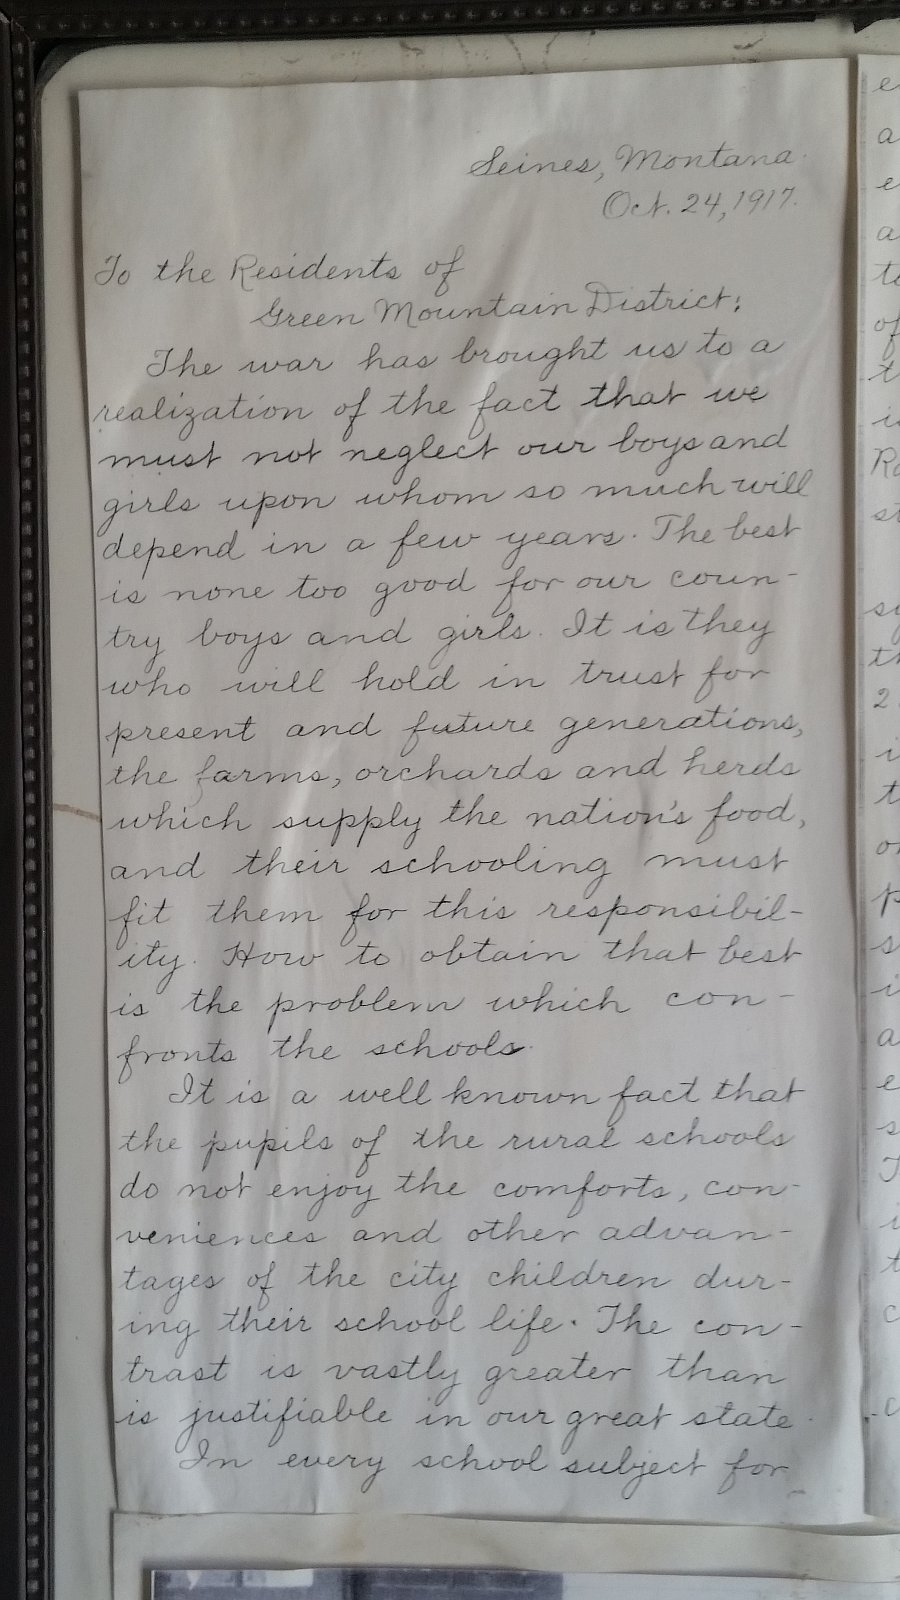 Seines, Montana.
Oct. 24, 1917.
To the Residents of
Green Mountain District:
The war has brought us to a
realization of the fact that we
must not neglect our boys and
girls upon whom so much will
depend in a few years. The best
is none too good for our coun-
try boys and girls. It is they
who will hold in trust for
present and future generations,
the farms, orchards and herds
which supply the nation's food,
and their schooling must
fit them for this responsibil-
ity. How to obtain that best
is the problem which con-
fronts the schools.
It is a well known fact that
the pupils of the rural schools
do not enjoy the comforts, con-
veniences and other advan-
tages of the city children dur-
ing their school life. The con-
trast is vastly greater than
is justifiable in our great state.
In every school subject for